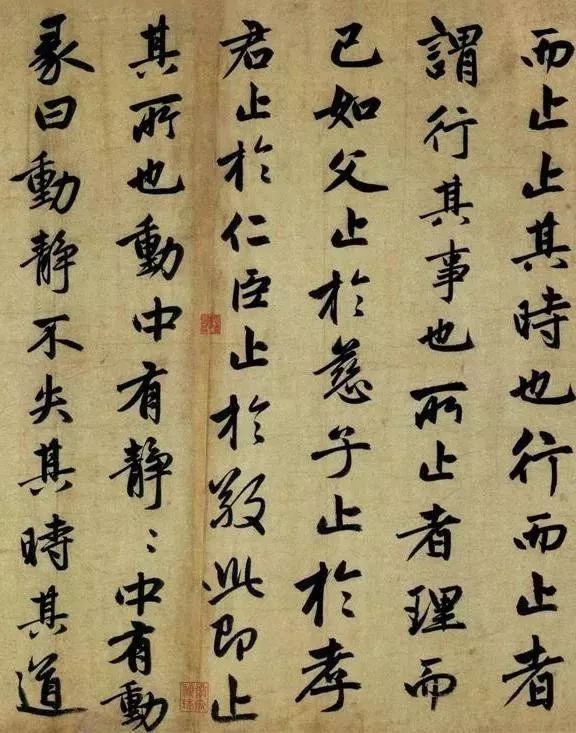 而止止其時也行而止者
謂行其事也所止者理而
已如父止於慈子止於孝
君止於仁臣止於敬此即止
其所也動中有靜〻中有動
彖曰動靜不失其時其道